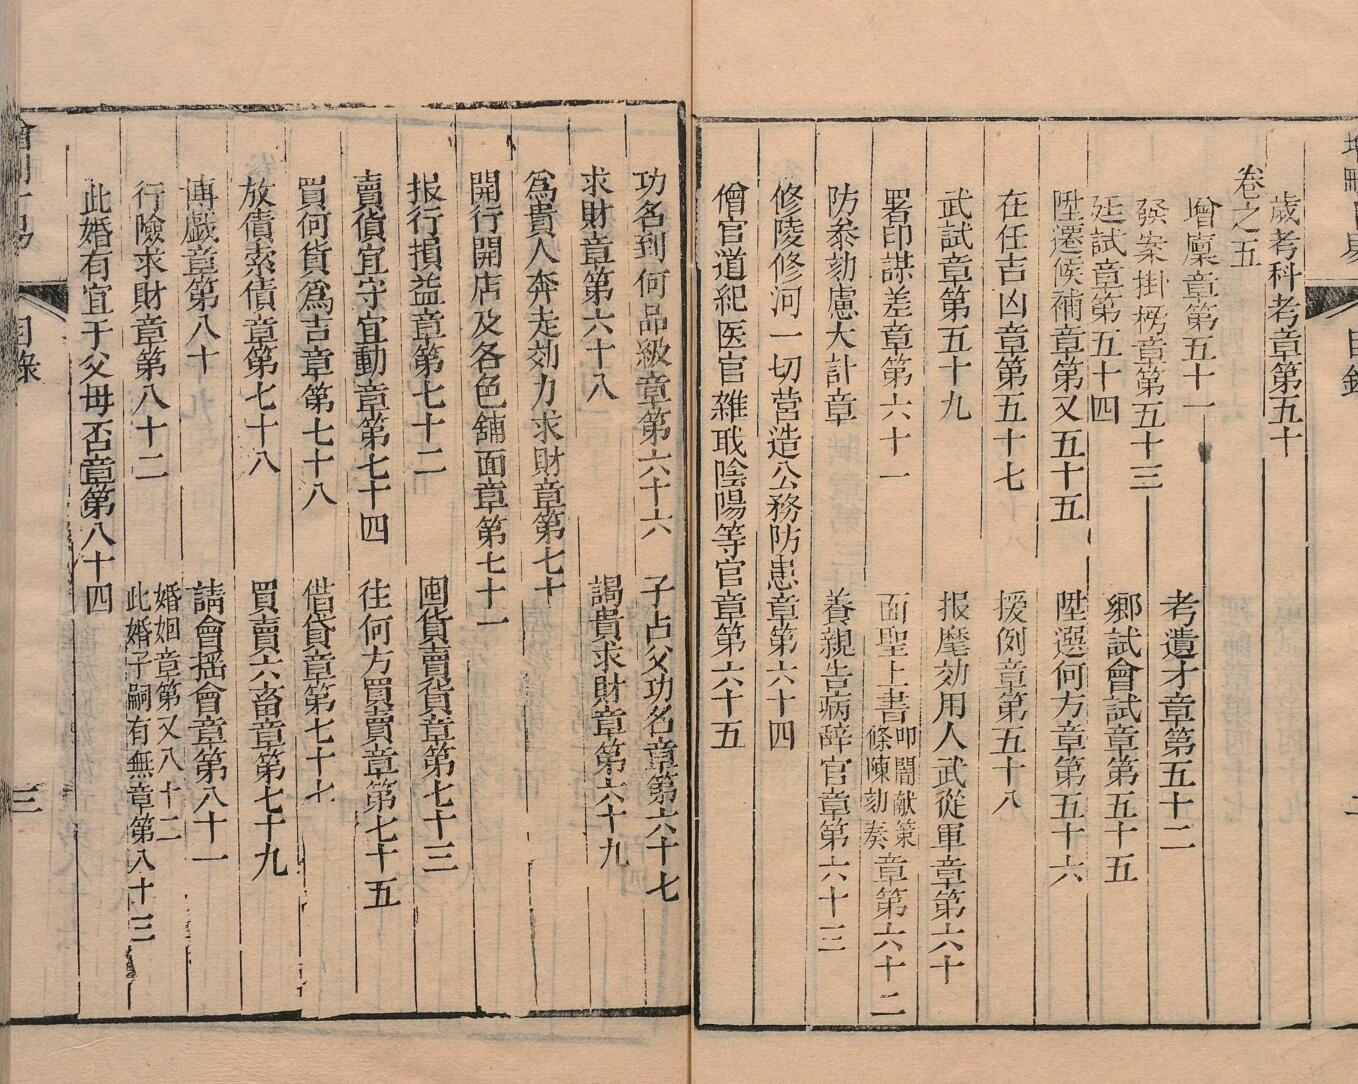 卷之五
歲考科考章第五十
增廩章第五十一
考遺才章第五十二
發案掛榜章第五十三
廷試章第五十四
鄉試會試章第五十五
陞遷候補章第又五十五
陞選何方章第五十六
在任吉凶章第五十七
援例章第五十八
武試章第五十九
报麾効用人武從軍章第六十
署印謀差章第六十一
面聖上書叩閽献策條陳劾奏章第六十二
防叅劾慮大計章
養親告病辞官章第六十三
修陵修河一切营造公務防患章第六十四
僧官道紀医官雜职陰陽等官章第六十五
功名到何品級章第六十六
子占父功名章第六十七
求財章第六十八
謁貴求財章第六十九
爲貴人奔走効力求財章第七十
開行開店及各色鋪面章第七十一
报行損益章第七十二
囤貨賣貨章第七十三
賣貨宜守宜動章第七十四
往何方買賣章第七十五
買何貨爲吉章第七十八
借貸章第七十七
放債索債章第七十八
買賣六畜章第七十九
博戲章第八十
請會搖會章第八十一
行險求財章第八十二
婚姻章第又八十二
此婚子嗣有無章第八十三
此婚有宜于父母否章第八十四
目錄
三